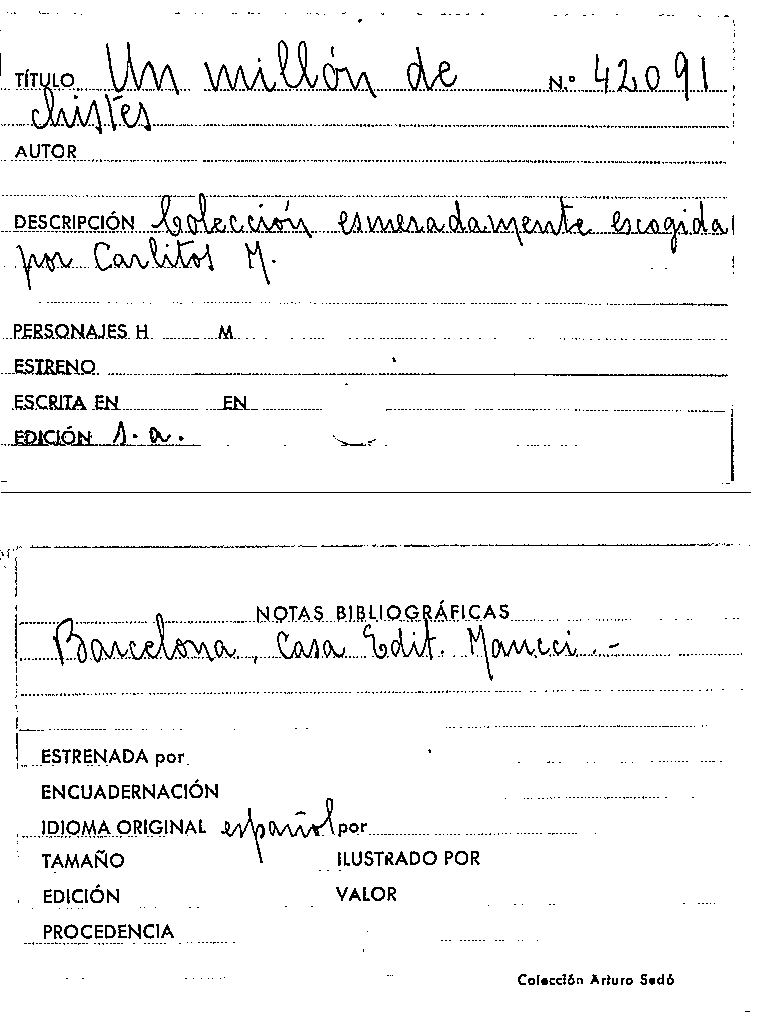 TÍTULO Un millón de N.º 42091
chistes
AUTOR
DESCRIPCIÓN Colección esmeradamente escogida
por Carlitos M.
PERSONAJES H M
ESTRENO
ESCRITA EN EN
EDICIÓN s.a.
NOTAS BIBLIOGRÁFICAS
Barcelona, Casa Edit. Maucci.-
ESTRENADA por
ENCUADERNACIÓN
IDIOMA ORIGINAL español por
TAMAÑO ILUSTRADO POR
EDICIÓN VALOR
PROCEDENCIA
Colección Arturo Sedó